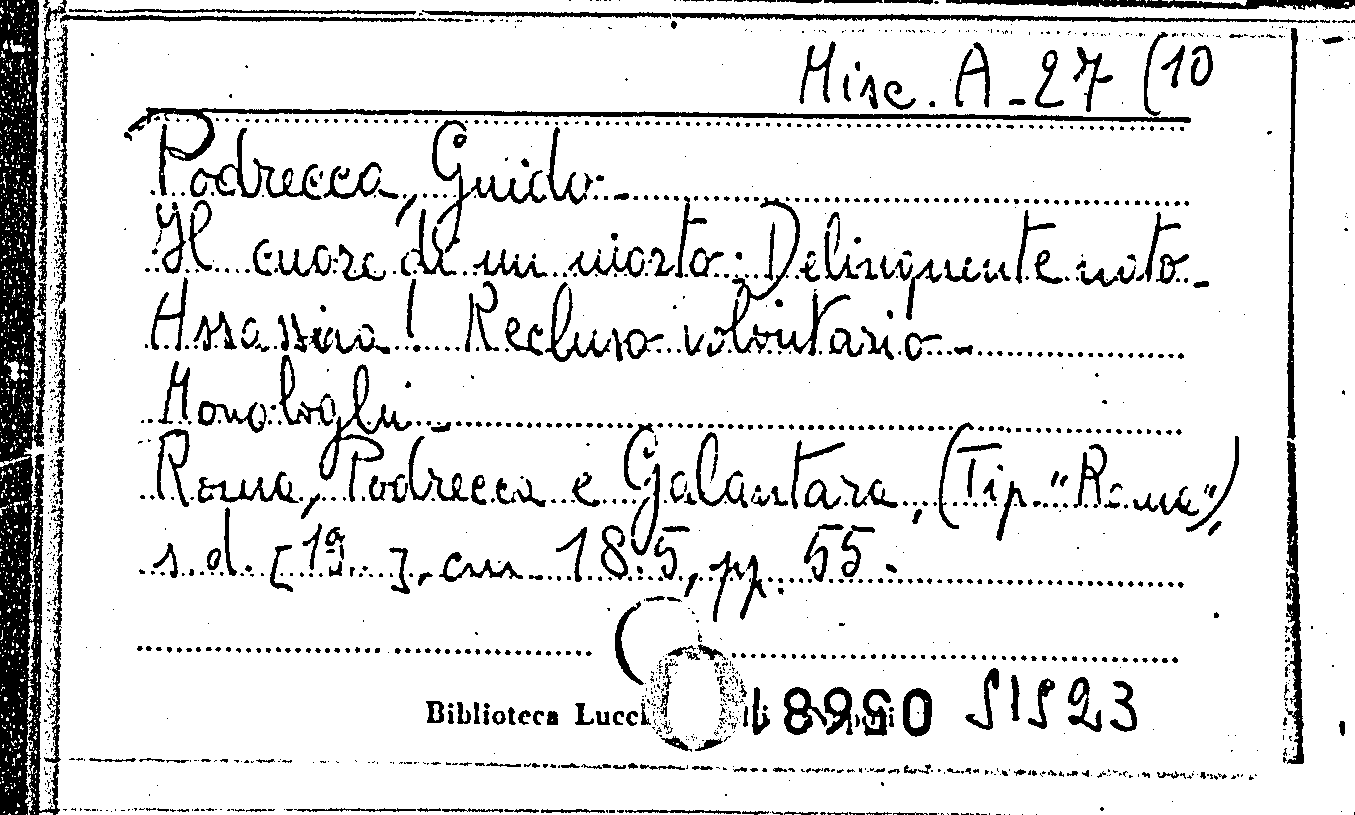 Misc. A - 27 (10
Podrecca, Guido. -
Il cuore di un morto. Delinquente nato -
Assassina! Recluso volontario -
Monologhi -
Roma, Podrecca e Galantara, (Tip. "Roma"),
s. d. [19..], cm 18.5, pp. 55.
Biblioteca 18990 SIS23